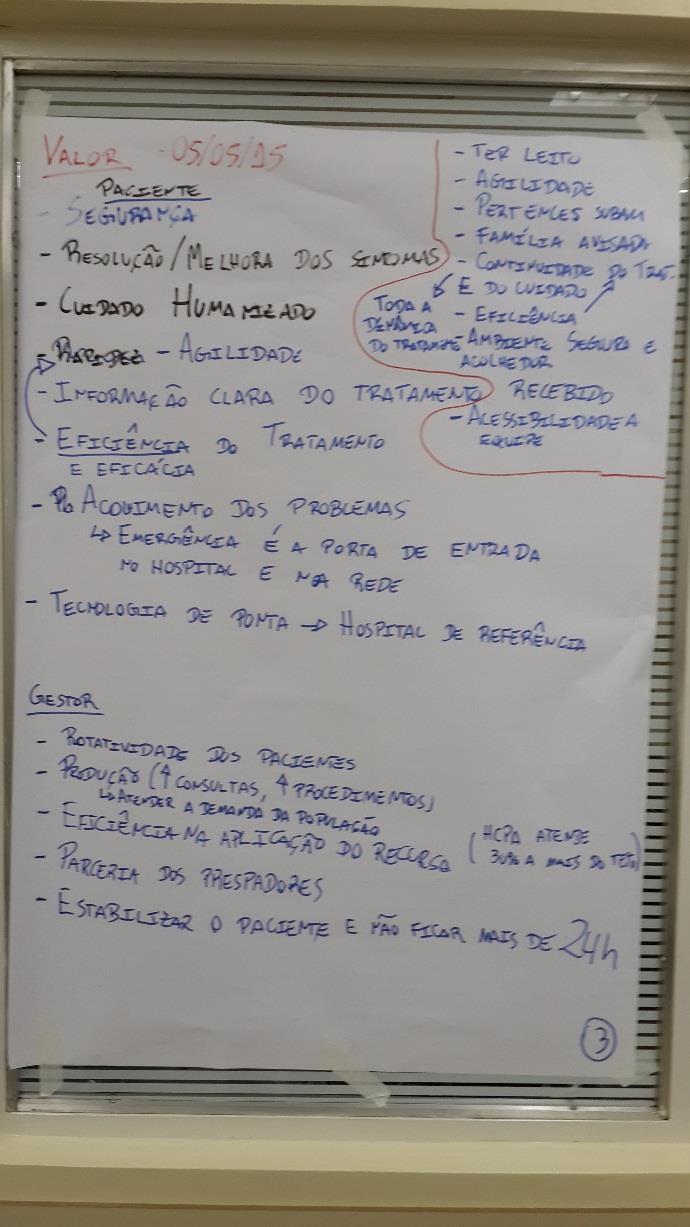 VALOR - 05/05/15
PACIENTE
- SEGURANÇA
- RESOLUÇÃO/MELHORA DOS SINTOMAS
- CUIDADO HUMANIZADO
- AGILIDADE
- INFORMAÇÃO CLARA DO TRATAMENTO RECEBIDO
- EFICIÊNCIA DO TRATAMENTO
E EFICÁCIA
- ACOLIMENTO DOS PROBLEMAS
↳ EMERGÊNCIA É A PORTA DE ENTRADA
NO HOSPITAL E NA REDE
- TECNOLOGIA DE PONTA → HOSPITAL DE REFERÊNCIA
- TER LEITO
- AGILIDADE
- PERTENCES SUBAM
- FAMÍLIA AVISADA
- CONTINUIDADE DO TRAT.
E DO CUIDADO
TODA A
DINÂMICA
DO TRATAMTE
- EFICIÊNCIA
- AMBIENTE SEGURO E
ACOLHEDOR
- ACESSIBILIDADE A
EQUIPE
GESTOR
- ROTATIVIDADE DOS PACIENTES
- PRODUÇÃO (↑ CONSULTAS, ↑ PROCEDIMENTOS)
↳ ATENDER A DEMANDA DA POPULAÇÃO
- EFICIÊNCIA NA APLICAÇÃO DO RECURSO (HCPA ATENDE
30% A MAIS DO TETO)
- PARCERIA DOS PRESTADORES
- ESTABILIZAR O PACIENTE E NÃO FICAR MAIS DE 24h
3